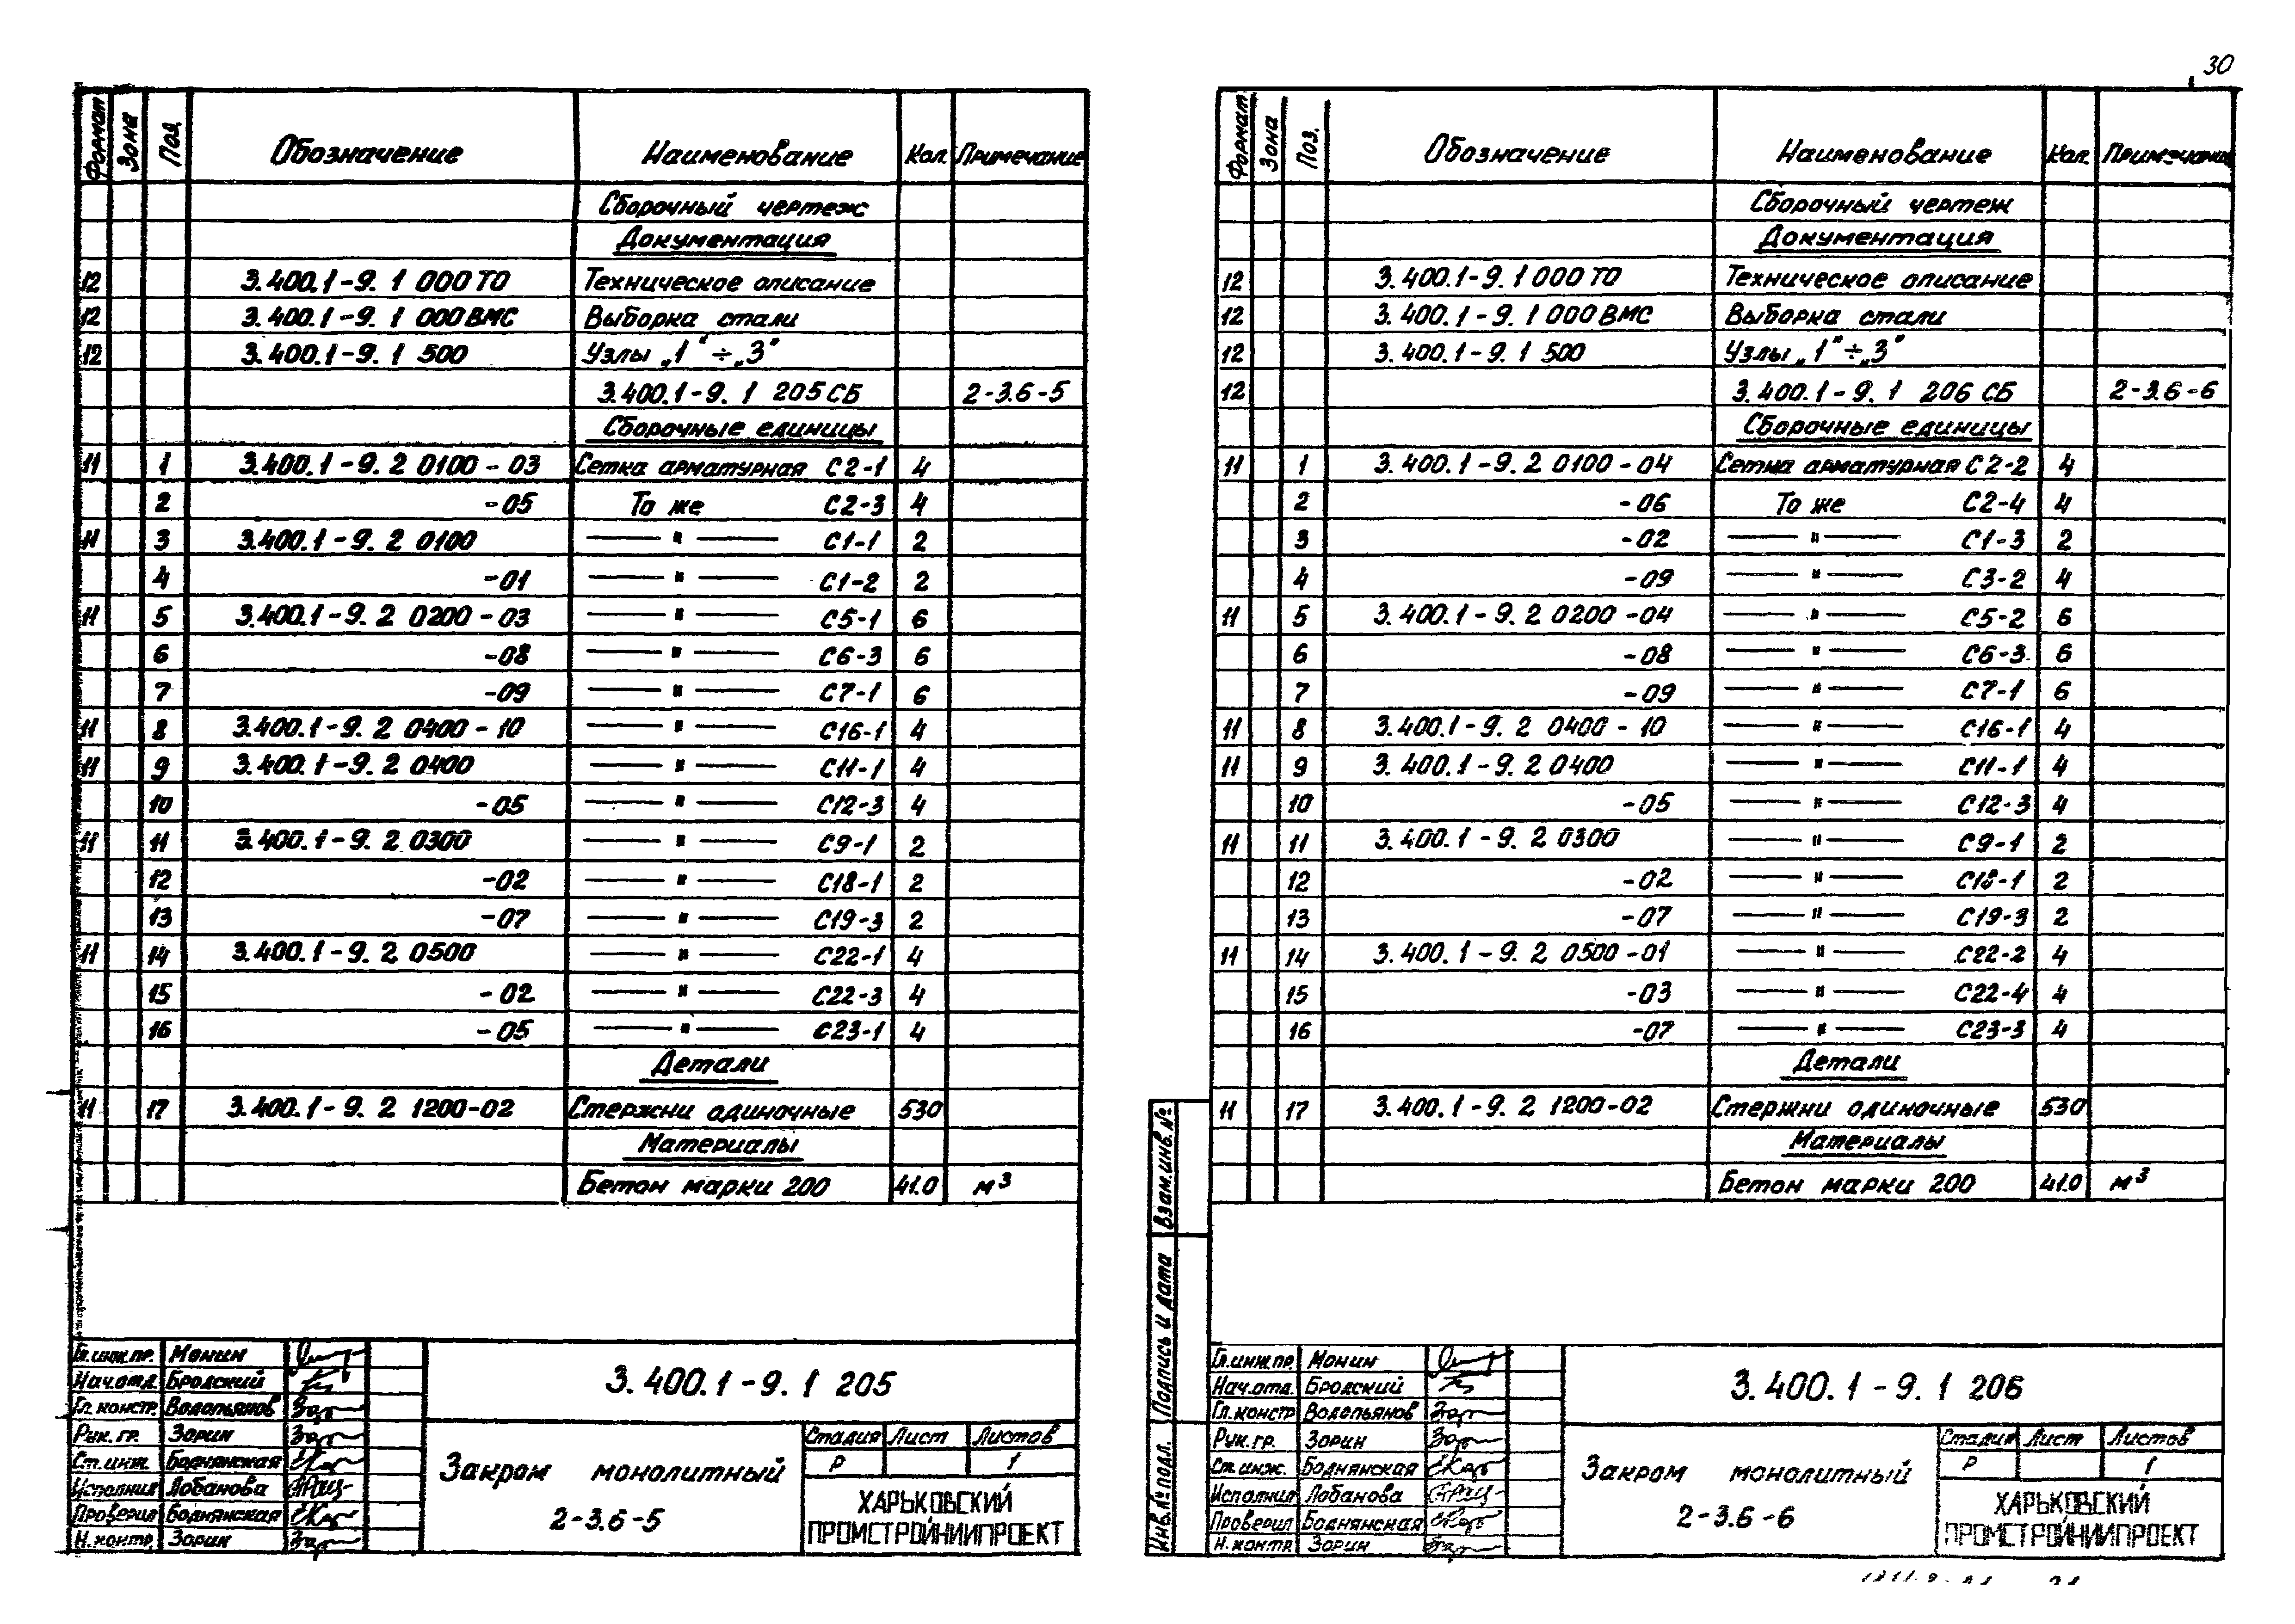 30
Формат Зона Поз. Обозначение Наименование Кол. Примечание
Сборочный чертеж
Документация
12 3.400.1-9. 1 000 ТО Техническое описание
12 3.400.1-9. 1 000 ВМС Выборка стали
12 3.400.1-9. 1 500 Узлы „1"÷„3"
3.400.1-9. 1 205 СБ 2-3.6-5
Сборочные единицы
11 1 3.400.1-9. 2 0100-03 Сетка арматурная С2-1 4
2 -05 То же С2-3 4
11 3 3.400.1-9. 2 0100 —"— С1-1 2
4 -01 —"— С1-2 2
11 5 3.400.1-9. 2 0200-03 —"— С5-1 6
6 -08 —"— С6-3 6
7 -09 —"— С7-1 6
11 8 3.400.1-9. 2 0400-10 —"— С16-1 4
11 9 3.400.1-9. 2 0400 —"— С11-1 4
10 -05 —"— С12-3 4
11 11 3.400.1-9. 2 0300 —"— С9-1 2
12 -02 —"— С18-1 2
13 -07 —"— С19-3 2
11 14 3.400.1-9. 2 0500 —"— С22-1 4
15 -02 —"— С22-3 4
16 -05 —"— С23-1 4
Детали
11 17 3.400.1-9. 2 1200-02 Стержни одиночные 530
Материалы
Бетон марки 200 41.0 м³
Гл.инж.пр. Монин
Нач.отд. Бродский
Гл.констр. Водопьянов
Рук.гр. Зорин
Ст.инж. Боднянская
Исполнил Лобанова
Проверил Боднянская
Н.контр. Зорин
3.400.1-9. 1 205
Закром монолитный
2-3.6-5
Стадия Лист Листов
Р 1
ХАРЬКОВСКИЙ
ПРОМСТРОЙНИИПРОЕКТ
Формат Зона Поз. Обозначение Наименование Кол. Примечание
Сборочный чертеж
Документация
12 3.400.1-9. 1 000 ТО Техническое описание
12 3.400.1-9. 1 000 ВМС Выборка стали
12 3.400.1-9. 1 500 Узлы „1"÷„3"
12 3.400.1-9. 1 206 СБ 2-3.6-6
Сборочные единицы
11 1 3.400.1-9. 2 0100-04 Сетка арматурная С2-2 4
2 -06 То же С2-4 4
3 -02 —"— С1-3 2
4 -09 —"— С3-2 4
11 5 3.400.1-9. 2 0200-04 —"— С5-2 6
6 -08 —"— С6-3 6
7 -09 —"— С7-1 6
11 8 3.400.1-9. 2 0400-10 —"— С16-1 4
11 9 3.400.1-9. 2 0400 —"— С11-1 4
10 -05 —"— С12-3 4
11 11 3.400.1-9. 2 0300 —"— С9-1 2
12 -02 —"— С18-1 2
13 -07 —"— С19-3 2
11 14 3.400.1-9. 2 0500-01 —"— С22-2 4
15 -03 —"— С22-4 4
16 -07 —"— С23-3 4
Детали
11 17 3.400.1-9. 2 1200-02 Стержни одиночные 530
Материалы
Бетон марки 200 41.0 м³
Взам.инв.№
Подпись и дата
Инв.№ подл.
Гл.инж.пр. Монин
Нач.отд. Бродский
Гл.констр Водопьянов
Рук.гр. Зорин
Ст.инж. Боднянская
Исполнил Лобанова
Проверил Боднянская
Н.контр. Зорин
3.400.1-9. 1 206
Закром монолитный
2-3.6-6
Стадия Лист Листов
Р 1
ХАРЬКОВСКИЙ
ПРОМСТРОЙНИИПРОЕКТ